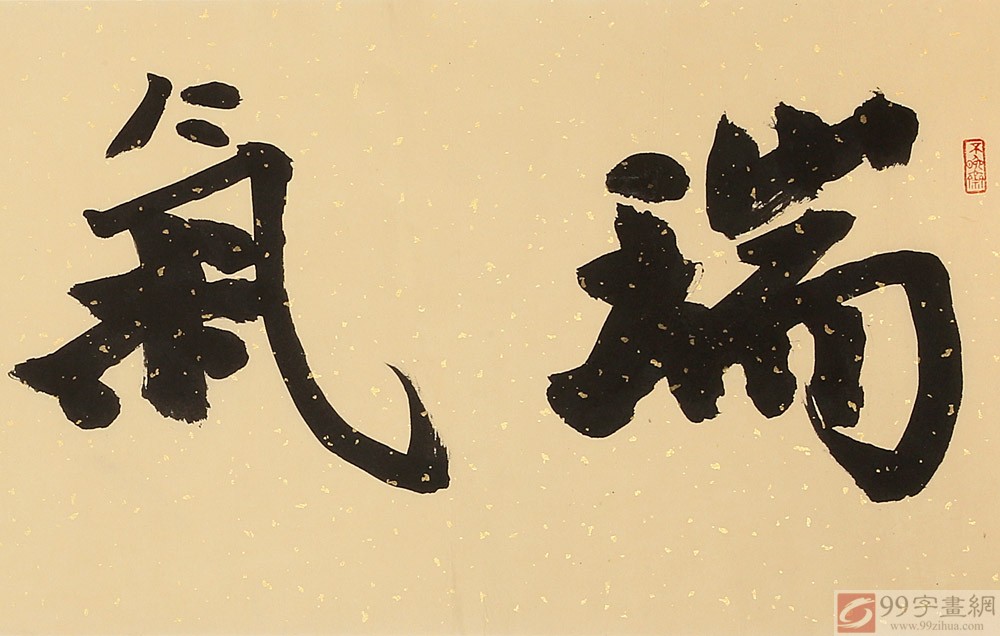 瑞氣
99字畫網
www.99zihua.com